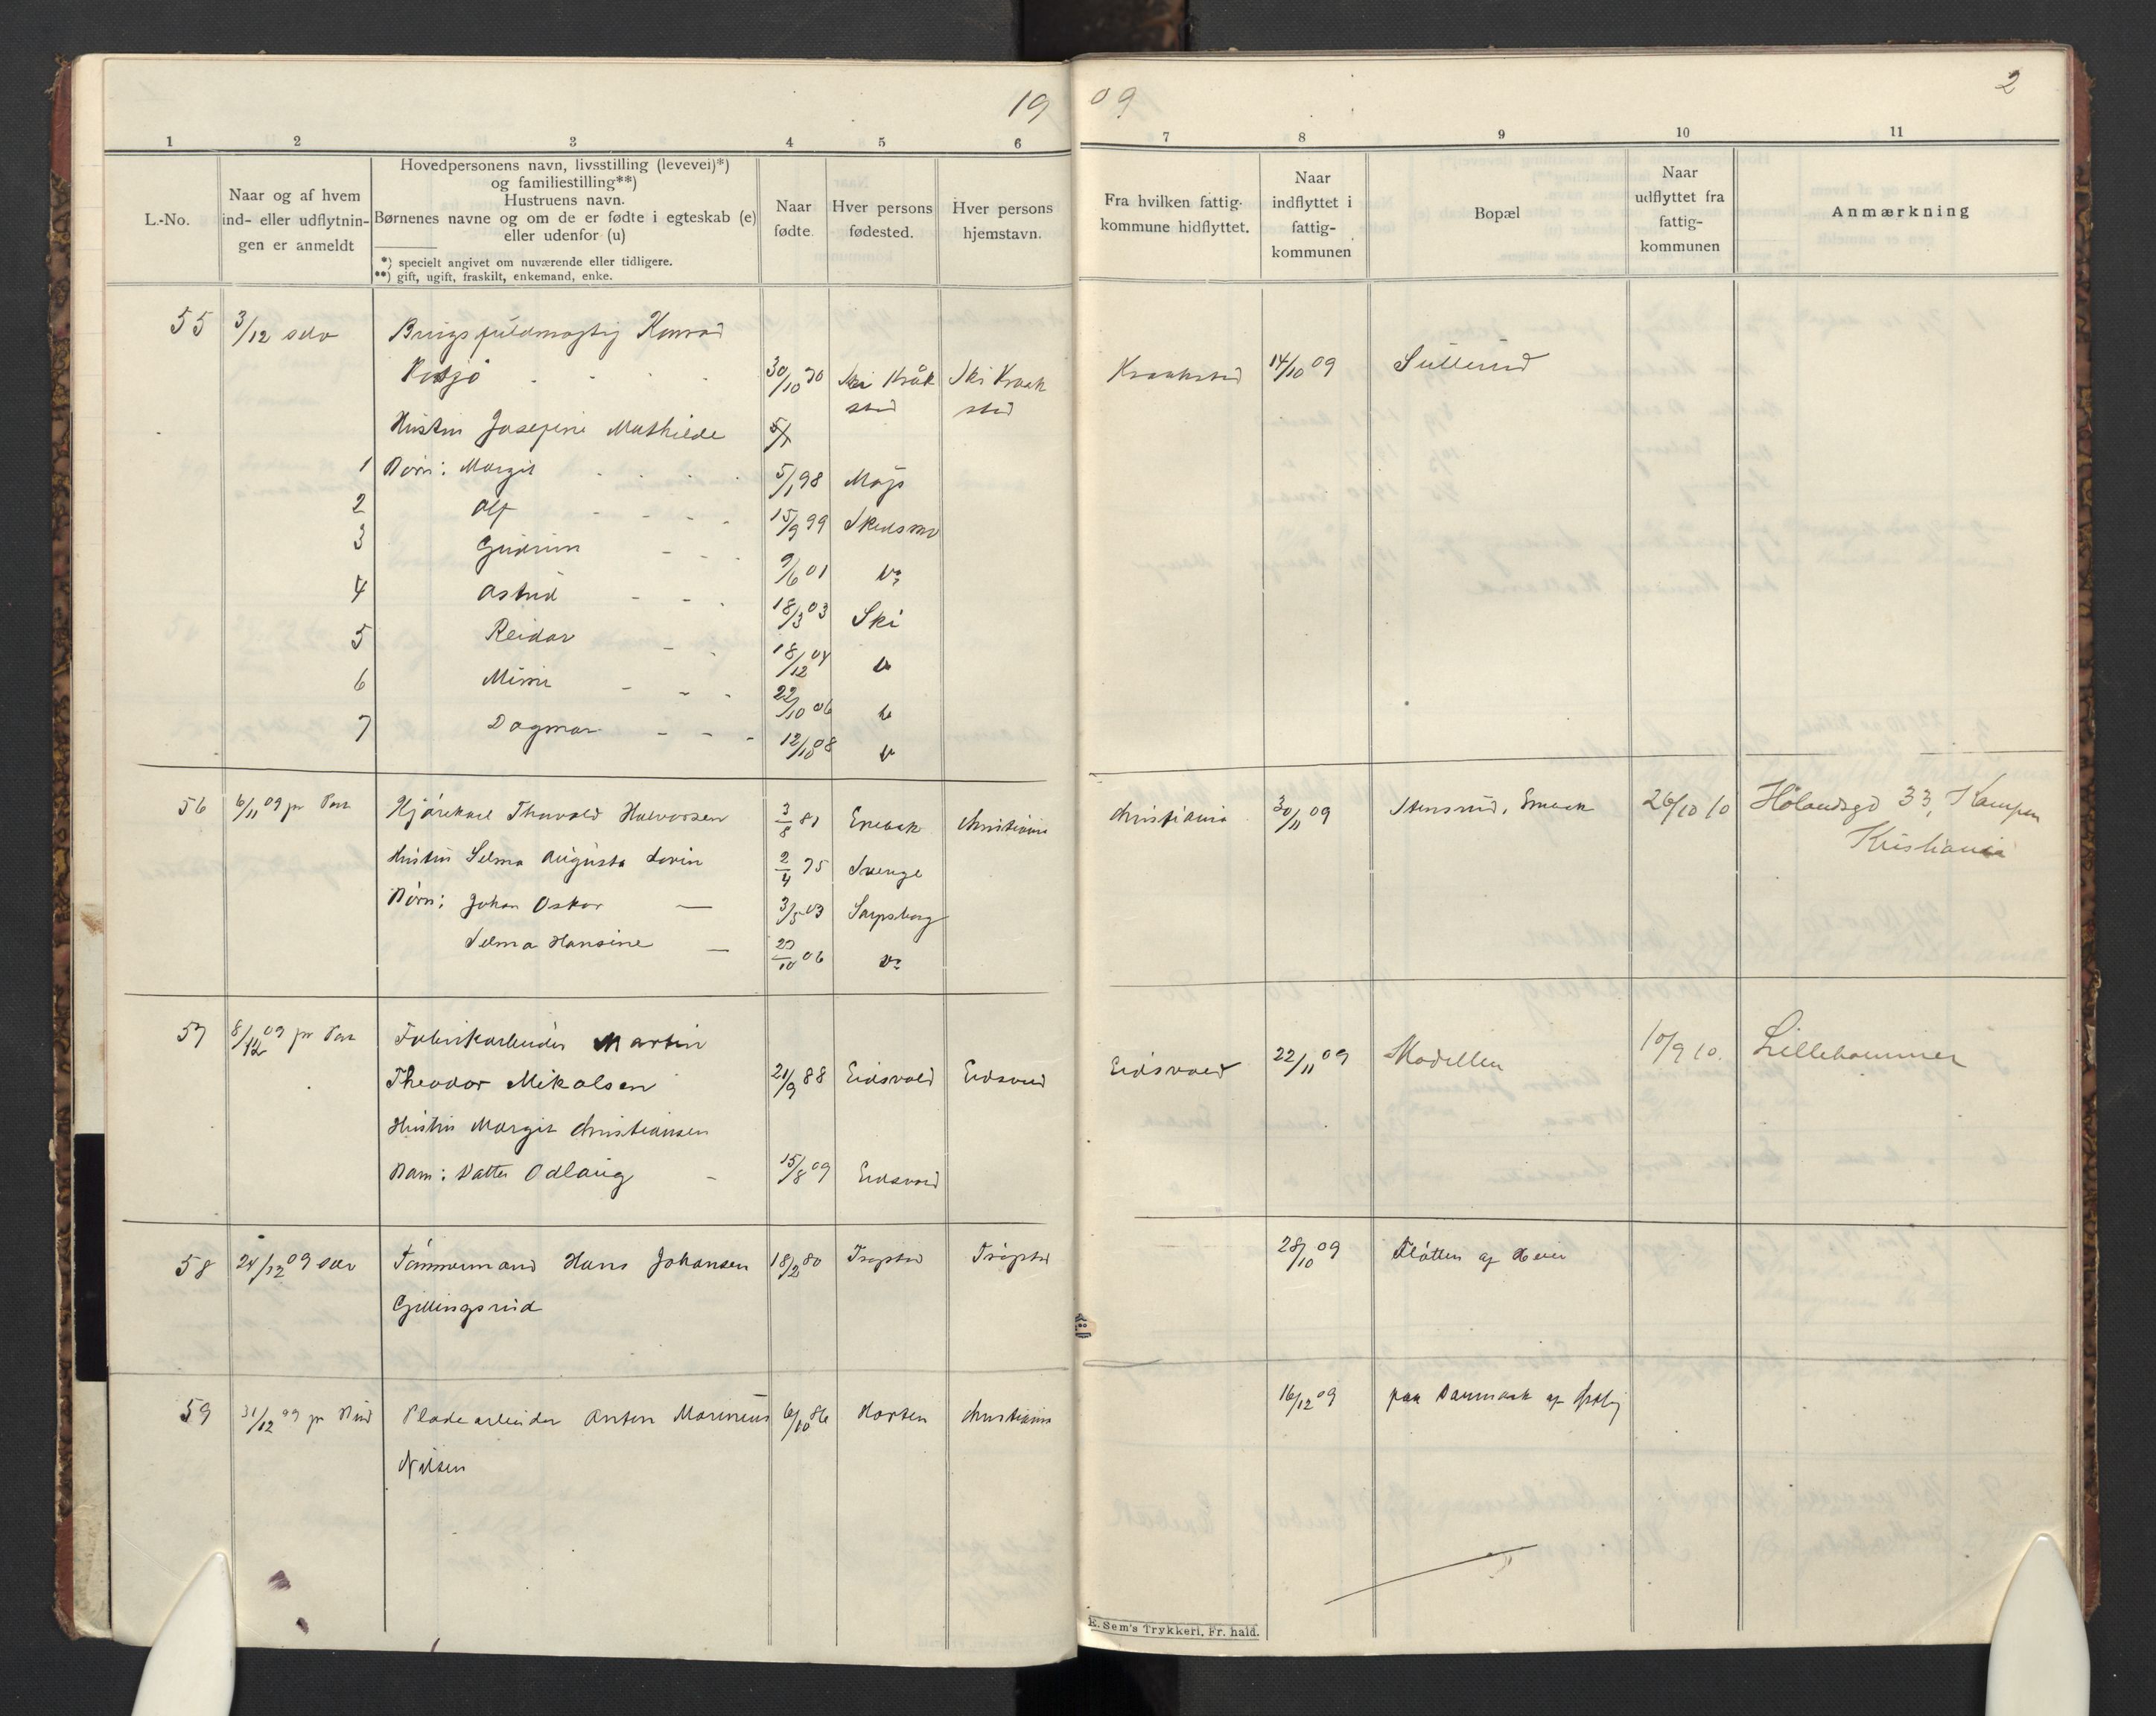 19 09
2
1 2 3 4 5 6 7 8 9 10 11
L.-No.
Naar og af hvem
ind- eller udflytnin-
gen er anmeldt
Hovedpersonens navn, livsstilling (levevei)*)
og familiestilling**)
Hustruens navn.
Børnenes navne og om de er fødte i egteskab (e)
eller udenfor (u)
*) specielt angivet om nuværende eller tidligere.
**) gift, ugift, fraskilt, enkemand, enke.
Naar
fødte.
Hver persons
fødested.
Hver persons
hjemstavn.
Fra hvilken fattig-
kommune hidflyttet.
Naar
indflyttet i
fattig-
kommunen
Bopæl
Naar
udflyttet fra
fattig-
kommunen
Anmærkning
55 3/12 selv Brugsfuldmægtig Konrad
30/10 70 Ski Kråk Ski Kraak Kraakstad 14/10 09
stad stad
Hustru Josefine Mathilde
1 Børn: Margit 5/1 98
2 Alf 15/9 99 Skedsmo
3 Gudrun 9/6 01
4 Astrid 18/3 03 Ski
5 Reidar 18/12 04
6 Mimi 22/10 06
7 Dagmar 12/10 08
56 6/11 09 pr Kjørekarl Thorvald Halvorsen 3/8 81 Enebak Christiania Christiania 30/11 09 Stensrud, Enebak 26/10 10 Hölandsgd 33, Kampen
Kristiania
Hustru Selma Augusta 2/4 75 Sverige
Børn: Johan Oskar — 3/5 03 Sarpsborg
Selma Hansine — 06
57 8/12 09 pr Fabrikarbeider Martin
Theodor Mikalsen 21/9 88 Eidsvold Eidsvold Eidsvold 22/11 09 10/9 10. Lillehammer
Hustru Margit Christiansen
Barn: Datter Odlaug - 15/8 09 Eidsvold
58 24/12 09 selv Tømmermand Hans Johansen 18/2 80 Trøgstad Trøgstad 28/10 09 Slåtten af Heier
Gillingsrud
59 31/12 09 pr Bud Pladearbeider Anton Marinius 6/10 86 Horten Christiania 16/12 09 paa Danmark af
Nilsen
E. Sem's Trykkeri, Fr. hald.